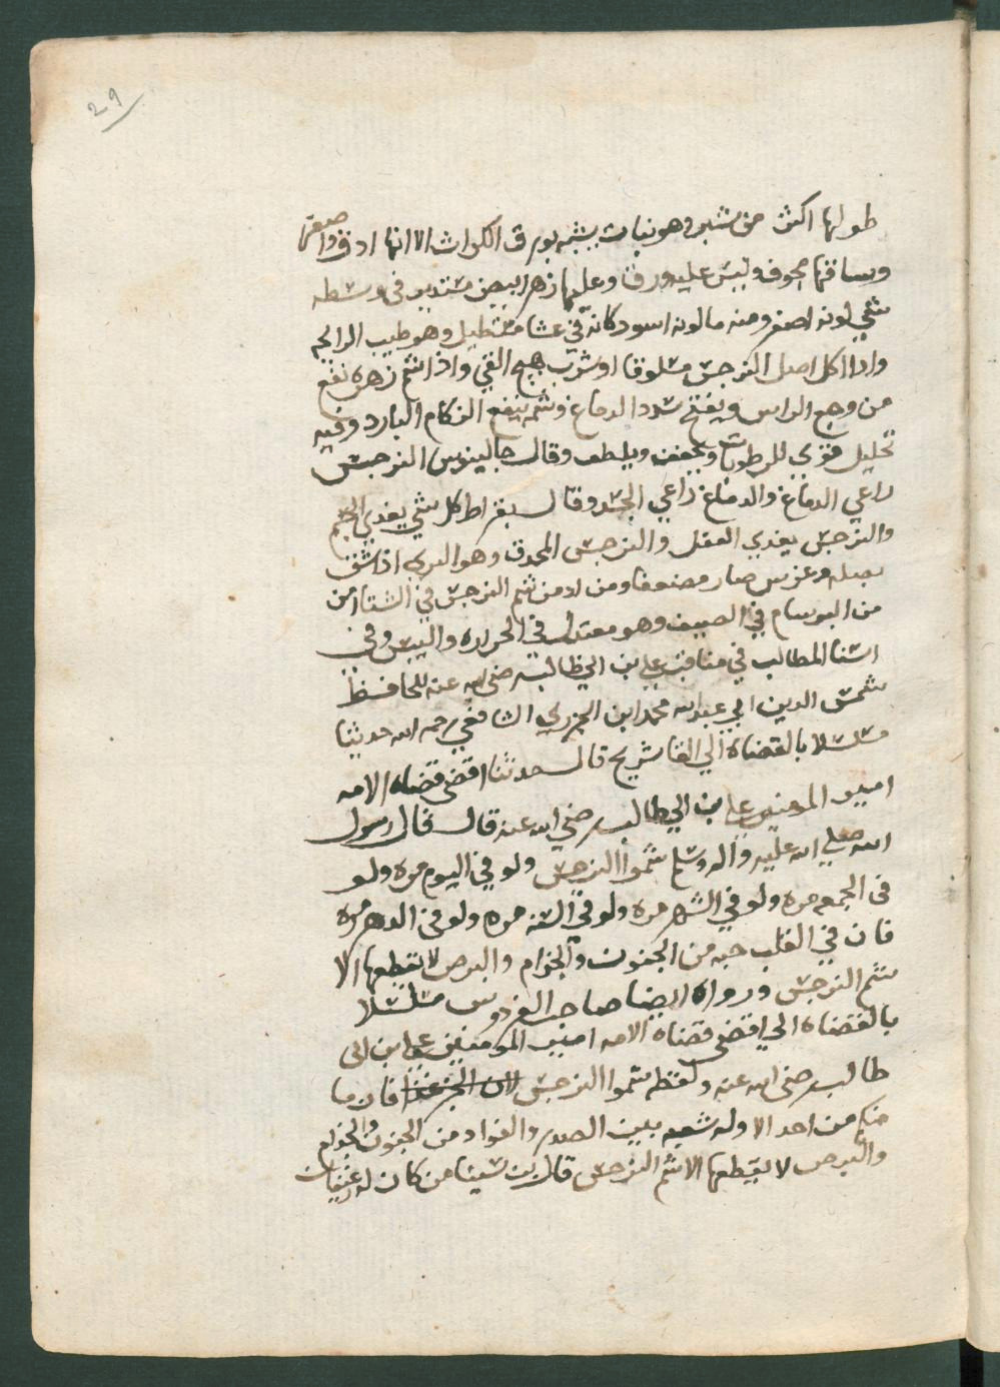 29
طولها اكثر من شبر وهو نبات يشبه بورق الكراث الا انها ادق واصغر
وساقها مجوف وليس عليه ورق وعليها زهر ابيض مستدير في وسطه
شي لونه اصفر ومنه ما لونه اسود كانه في غشا مستطيل وهو طيب الرايحه
واذا اكل اصل النرجس مسلوقا او شرب هيج القي واذا اشتم زهره نفع
من وجع الراس ويفتح سدد الدماغ وشمه ينفع الزكام البارد وفيه
تحليل قوي للرطوبات ويجفف ويلطف وقال جالينوس النرجس
راعي الدماغ والدماغ راعي الجسد وقال بقراط كل شي يغدي الجسم
والنرجس يغدي العقل والنرجس المحدق وهو البري اذا شق
بصله وغرس صار مضعفا ومن ادمن شم النرجس في الشتا امن
من البرسام في الصيف وهو معتدل في الحراره واليبس وفي
اسنا المطالب في مناقب علي بن ابي طالب رضي الله عنه للحافظ
شمس الدين ابي عبد الله محمد ابن الجزري الشافعي رحمه الله حديثا
مسلسلا بالقضاة الي القا شريح قال حدثنا اقضى قضاة الامه
امير المومنين علي بن ابي طالب رضي الله عنه قال قال رسول
الله صلي الله عليه واله وسلم شموا النرجس ولو في اليوم مره ولو
في الجمعه مره ولو في الشهر مره ولو في السنه مره ولو في الدهر مره
فان في القلب حبه من الجنون والجذام والبرص لا يقطعها الا
شم النرجس ورواه ايضا صاحب الفردوس مسلسلا
بالقضاة الي اقضى قضاة الامه امير المومنين علي بن ابي
طالب رضي الله عنه ولفظه شموا النرجس فان ما
منكم من احد الا وله شعبه بين الصدر والفواد من الجنون والجذام
والبرص لا يقطعها الا شم النرجس قال بن سينا من كان له رغيفان